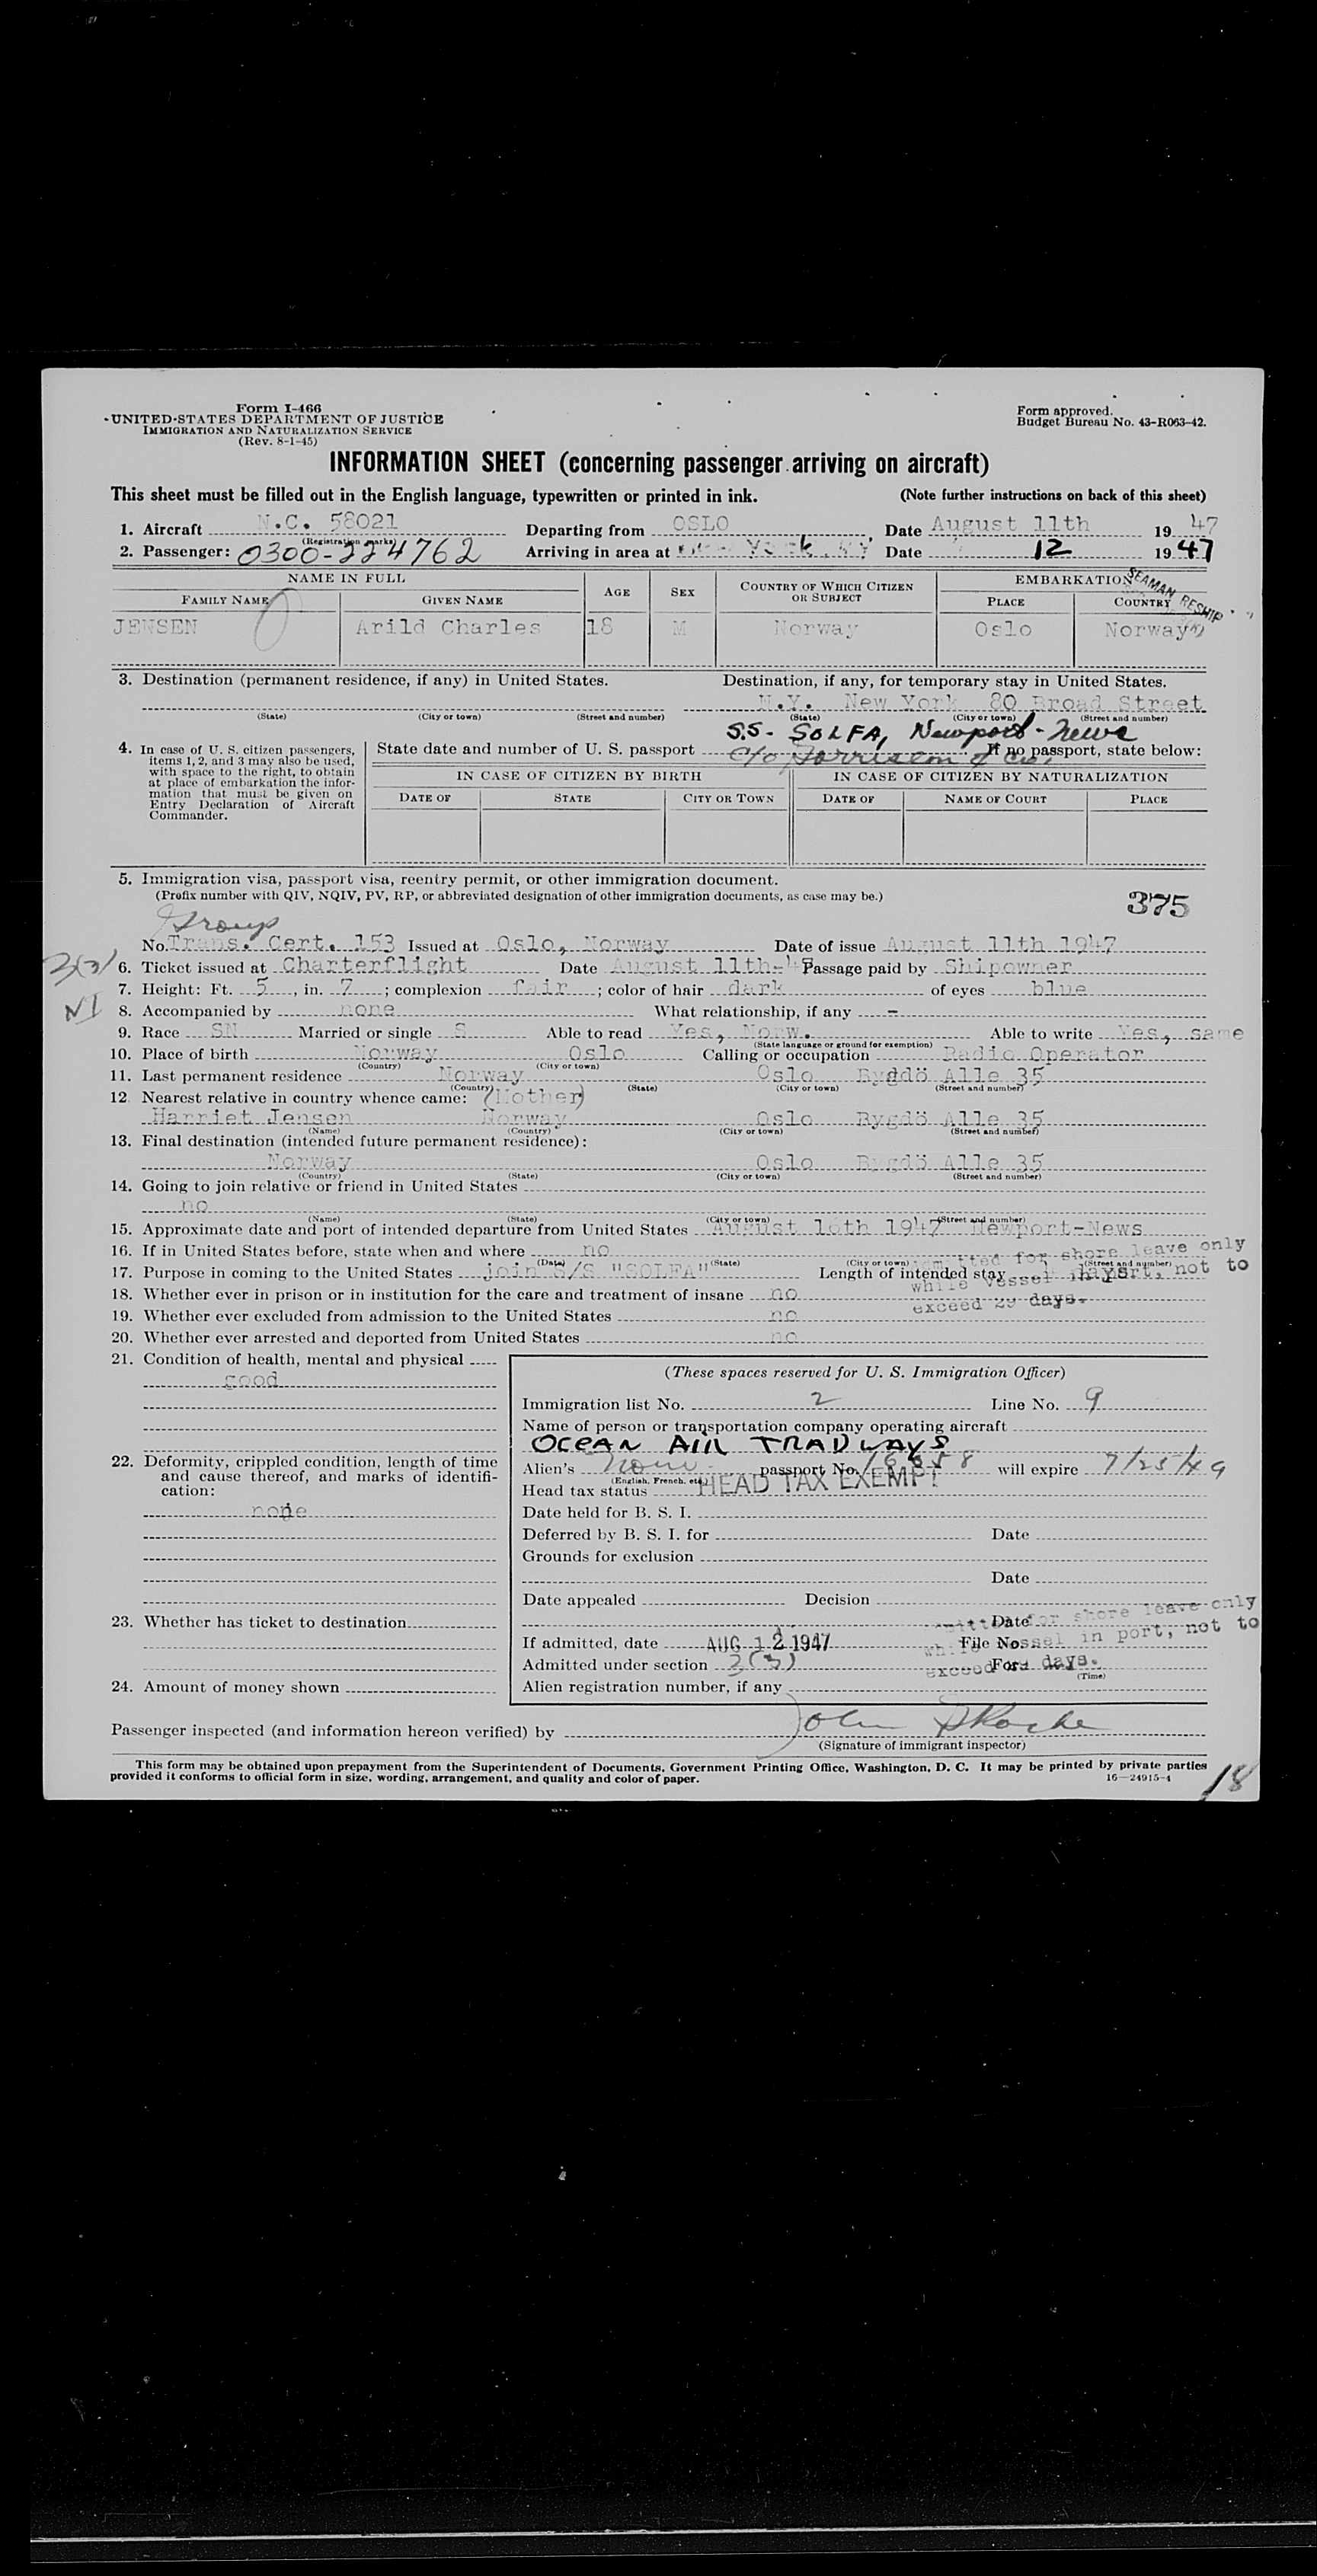 Form I-466
UNITED STATES DEPARTMENT OF JUSTICE
IMMIGRATION AND NATURALIZATION SERVICE
(Rev. 8-1-45)
Form approved.
Budget Bureau No. 43-R063-42.
INFORMATION SHEET (concerning passenger arriving on aircraft)
This sheet must be filled out in the English language, typewritten or printed in ink. (Note further instructions on back of this sheet)
1. Aircraft N.C. 58021 Departing from OSLO, Date August 11th 1947
(Registration marks)
2. Passenger: 0300-224762 Arriving in area at York, NY Date 12 1947
NAME IN FULL AGE SEX COUNTRY OF WHICH CITIZEN OR SUBJECT EMBARKATION
SEAMAN RESHIP
FAMILY NAME GIVEN NAME PLACE COUNTRY
JENSEN Arild Charles 18 M Norway Oslo Norway
3. Destination (permanent residence, if any) in United States. Destination, if any, for temporary stay in United States.
N.Y. New York 80 Broad Street
(State) (City or town) (Street and number) (State) (City or town) (Street and number)
S.S. SOLFA, Newport-News
4. In case of U. S. citizen passengers, items 1, 2, and 3 may also be used, with space to the right, to obtain at place of embarkation the information that must be given on Entry Declaration of Aircraft Commander.
State date and number of U. S. passport c/o & Co. If no passport, state below:
IN CASE OF CITIZEN BY BIRTH IN CASE OF CITIZEN BY NATURALIZATION
DATE OF STATE CITY OR TOWN DATE OF NAME OF COURT PLACE
5. Immigration visa, passport visa, reentry permit, or other immigration document.
(Prefix number with QIV, NQIV, PV, RP, or abbreviated designation of other immigration documents, as case may be.)
375
Group
No. Trans. Cert. 153 Issued at Oslo, Norway Date of issue August 11th 1947
3(3)
6. Ticket issued at Charterflight Date August 11th-47 Passage paid by Shipowner
7. Height: Ft. 5, in. 7; complexion fair; color of hair dark of eyes blue
NI
8. Accompanied by none What relationship, if any -
9. Race SN Married or single S Able to read Yes, Norw. Able to write Yes, same
(State language or ground for exemption)
10. Place of birth Norway Oslo Calling or occupation Radio Operator
(Country) (City or town)
11. Last permanent residence Norway Oslo Bygdö Alle 35
(Country) (State) (City or town) (Street and number)
12 Nearest relative in country whence came: (Mother)
Harriet Jensen Norway Oslo Bygdö Alle 35
(Name) (Country) (City or town) (Street and number)
13. Final destination (intended future permanent residence):
Norway Oslo Bygdö Alle 35
(Country) (State) (City or town) (Street and number)
14. Going to join relative or friend in United States
no
(Name) (State) (City or town) (Street and number)
15. Approximate date and port of intended departure from United States August 16th 1947 Newport-News
16. If in United States before, state when and where no
(Date) (State) (City or town) (Street and number)
17. Purpose in coming to the United States join S/S "SOLFA" Length of intended stay days
for shore leave only
while vessel in port, not to
exceed 29 days.
18. Whether ever in prison or in institution for the care and treatment of insane no
19. Whether ever excluded from admission to the United States no
20. Whether ever arrested and deported from United States no
21. Condition of health, mental and physical
good
22. Deformity, crippled condition, length of time and cause thereof, and marks of identification:
none
23. Whether has ticket to destination
24. Amount of money shown
(These spaces reserved for U. S. Immigration Officer)
Immigration list No. 2 Line No. 9
Name of person or transportation company operating aircraft
OCEAN AIR TRADWAYS
Alien's Norw passport No. 16658 will expire 7/25/49
(English, French, etc.)
Head tax status HEAD TAX EXEMPT
Date held for B. S. I.
Deferred by B. S. I. for Date
Grounds for exclusion
Date
Date appealed Decision
Date
for shore leave only
If admitted, date AUG 12 1947 File No.
vessel in port, not to
Admitted under section 3(3) For
exceed days.
(Time)
Alien registration number, if any
Passenger inspected (and information hereon verified) by John Roche
(Signature of immigrant inspector)
This form may be obtained upon prepayment from the Superintendent of Documents, Government Printing Office, Washington, D. C. It may be printed by private parties
provided it conforms to official form in size, wording, arrangement, and quality and color of paper. 16—24915-1
18